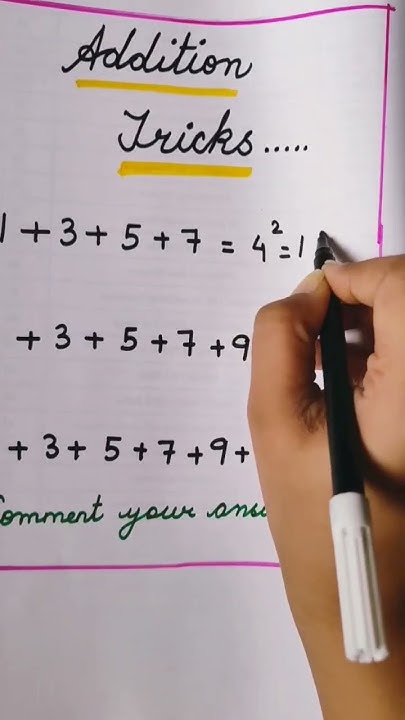 Addition
Tricks.....
1 + 3 + 5 + 7 = 4² = 1
+ 3 + 5 + 7 + 9
+ 3 + 5 + 7 + 9 +
Comment your